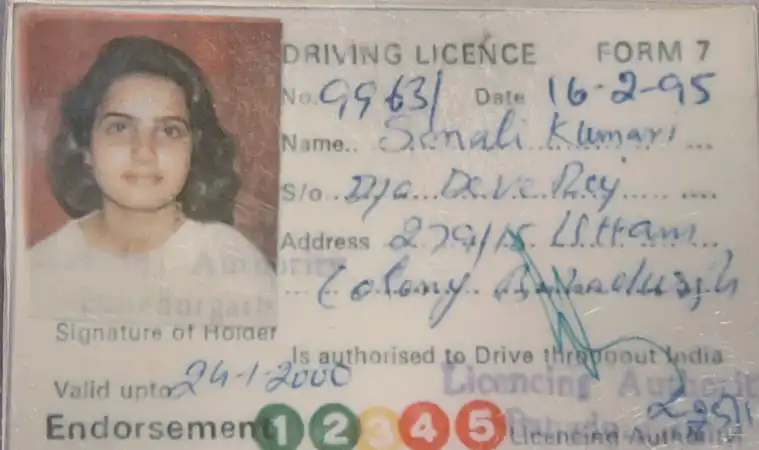 DRIVING LICENCE FORM 7
No. 99631 Date 16-2-95
Name.. Sonali Kumari ...
S/o .. D/o... Deve Roy ..... ....
Address 279/15 Uttam...
... Colony Bahadurgarh
Licensing Authority
Bahadurgarh
Signature of Holder
Is authorised to Drive throughout India
Valid upto 24-1-2000
Licencing Authority
Endorsement 1 2 3 4 5 Licencing Authority